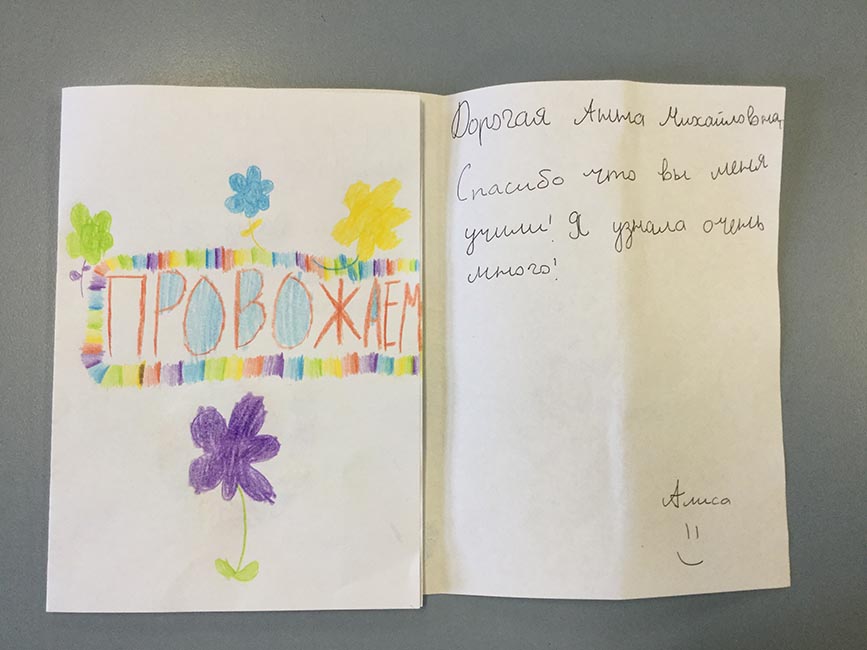 ПРОВОЖАЕМ
Дорогая Анна Михайловна,
Спасибо что вы меня
учили! Я узнала очень
много!
Алиса